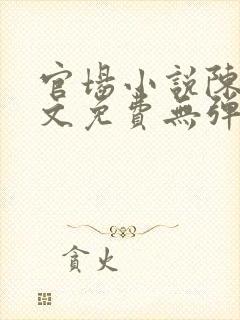 官場小說陳
文免費無彈
貪火